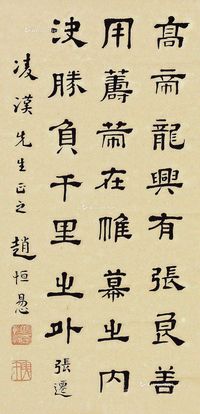 高帝龍興有張良善
用薵策在帷幕之内
決勝負千里之外 張遷
凌漢先生正之 趙恒惖